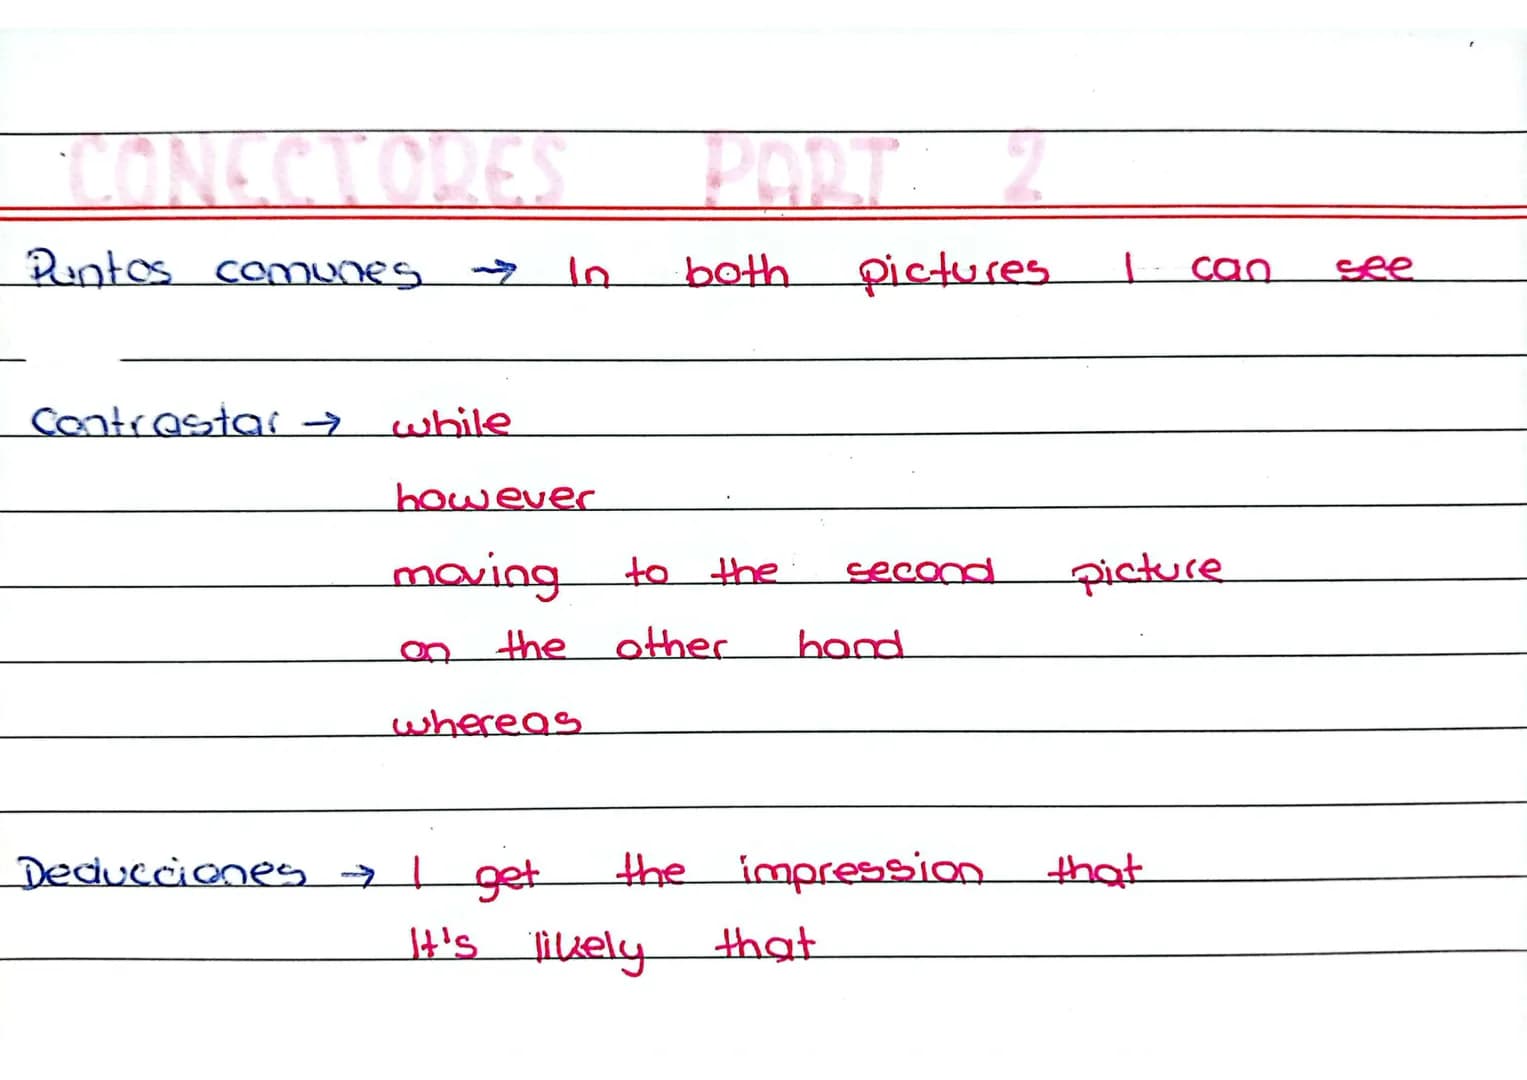 CONECTORES PART 2
Puntos comunes → In both pictures I can see
Contrastar → while
however
moving to the second picture
on the other hand
whereas
Deducciones → I get the impression that
It's likely that